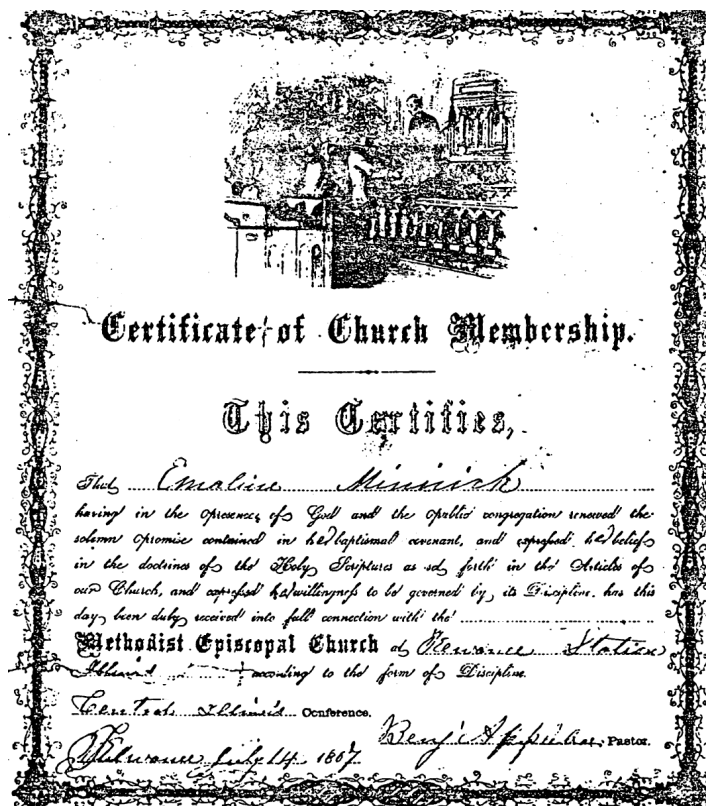 Certificate of Church Membership.
This Certifies,
That Emaline Minnick
having in the presence of God and the public congregation renewed the
solemn promise contained in her baptismal covenant, and expressed her belief
in the doctrines of the Holy Scriptures as set forth in the Articles of
our Church, and expressed her willingness to be governed by its Discipline, has this
day been duly received into full connection with the
Methodist Episcopal Church at Kewanee Station
Illinois according to the form of Discipline.
Central Illinois Conference.
Benj. Pastor.
Kewanee July 14 1867